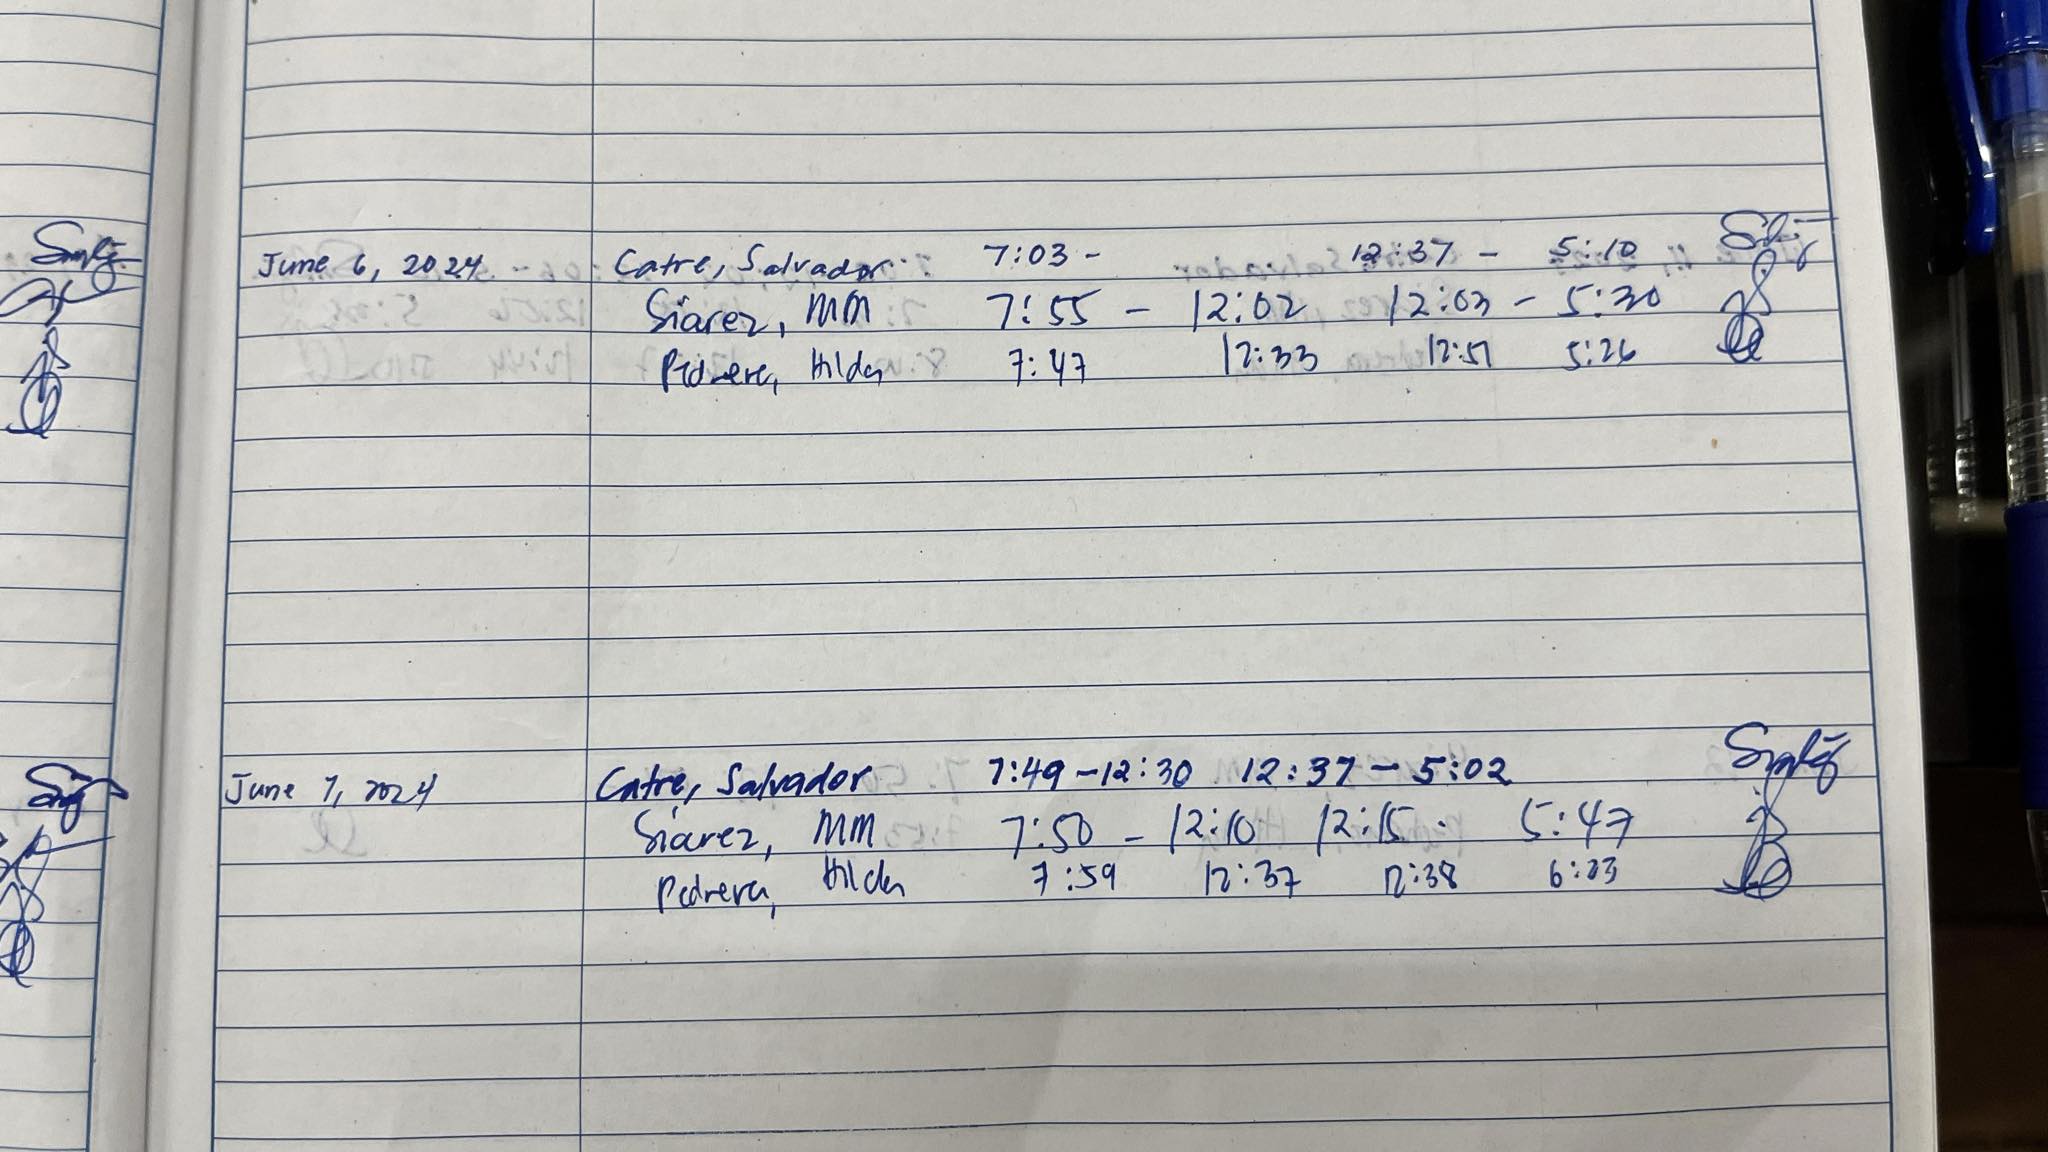 June 6, 2024 Catre, Salvador 7:03 - 12:37 - 5:10
Siarez, MM 7:55 - 12:02 12:03 - 5:30
Pedrera, Hilda 7:47 12:33 12:51 5:26
June 7, 2024 Catre, Salvador 7:49 - 12:30 12:37 - 5:02
Siarez, MM 7:50 - 12:10 12:15 - 5:47
Pedrera, Hilda 7:59 12:37 12:38 6:23